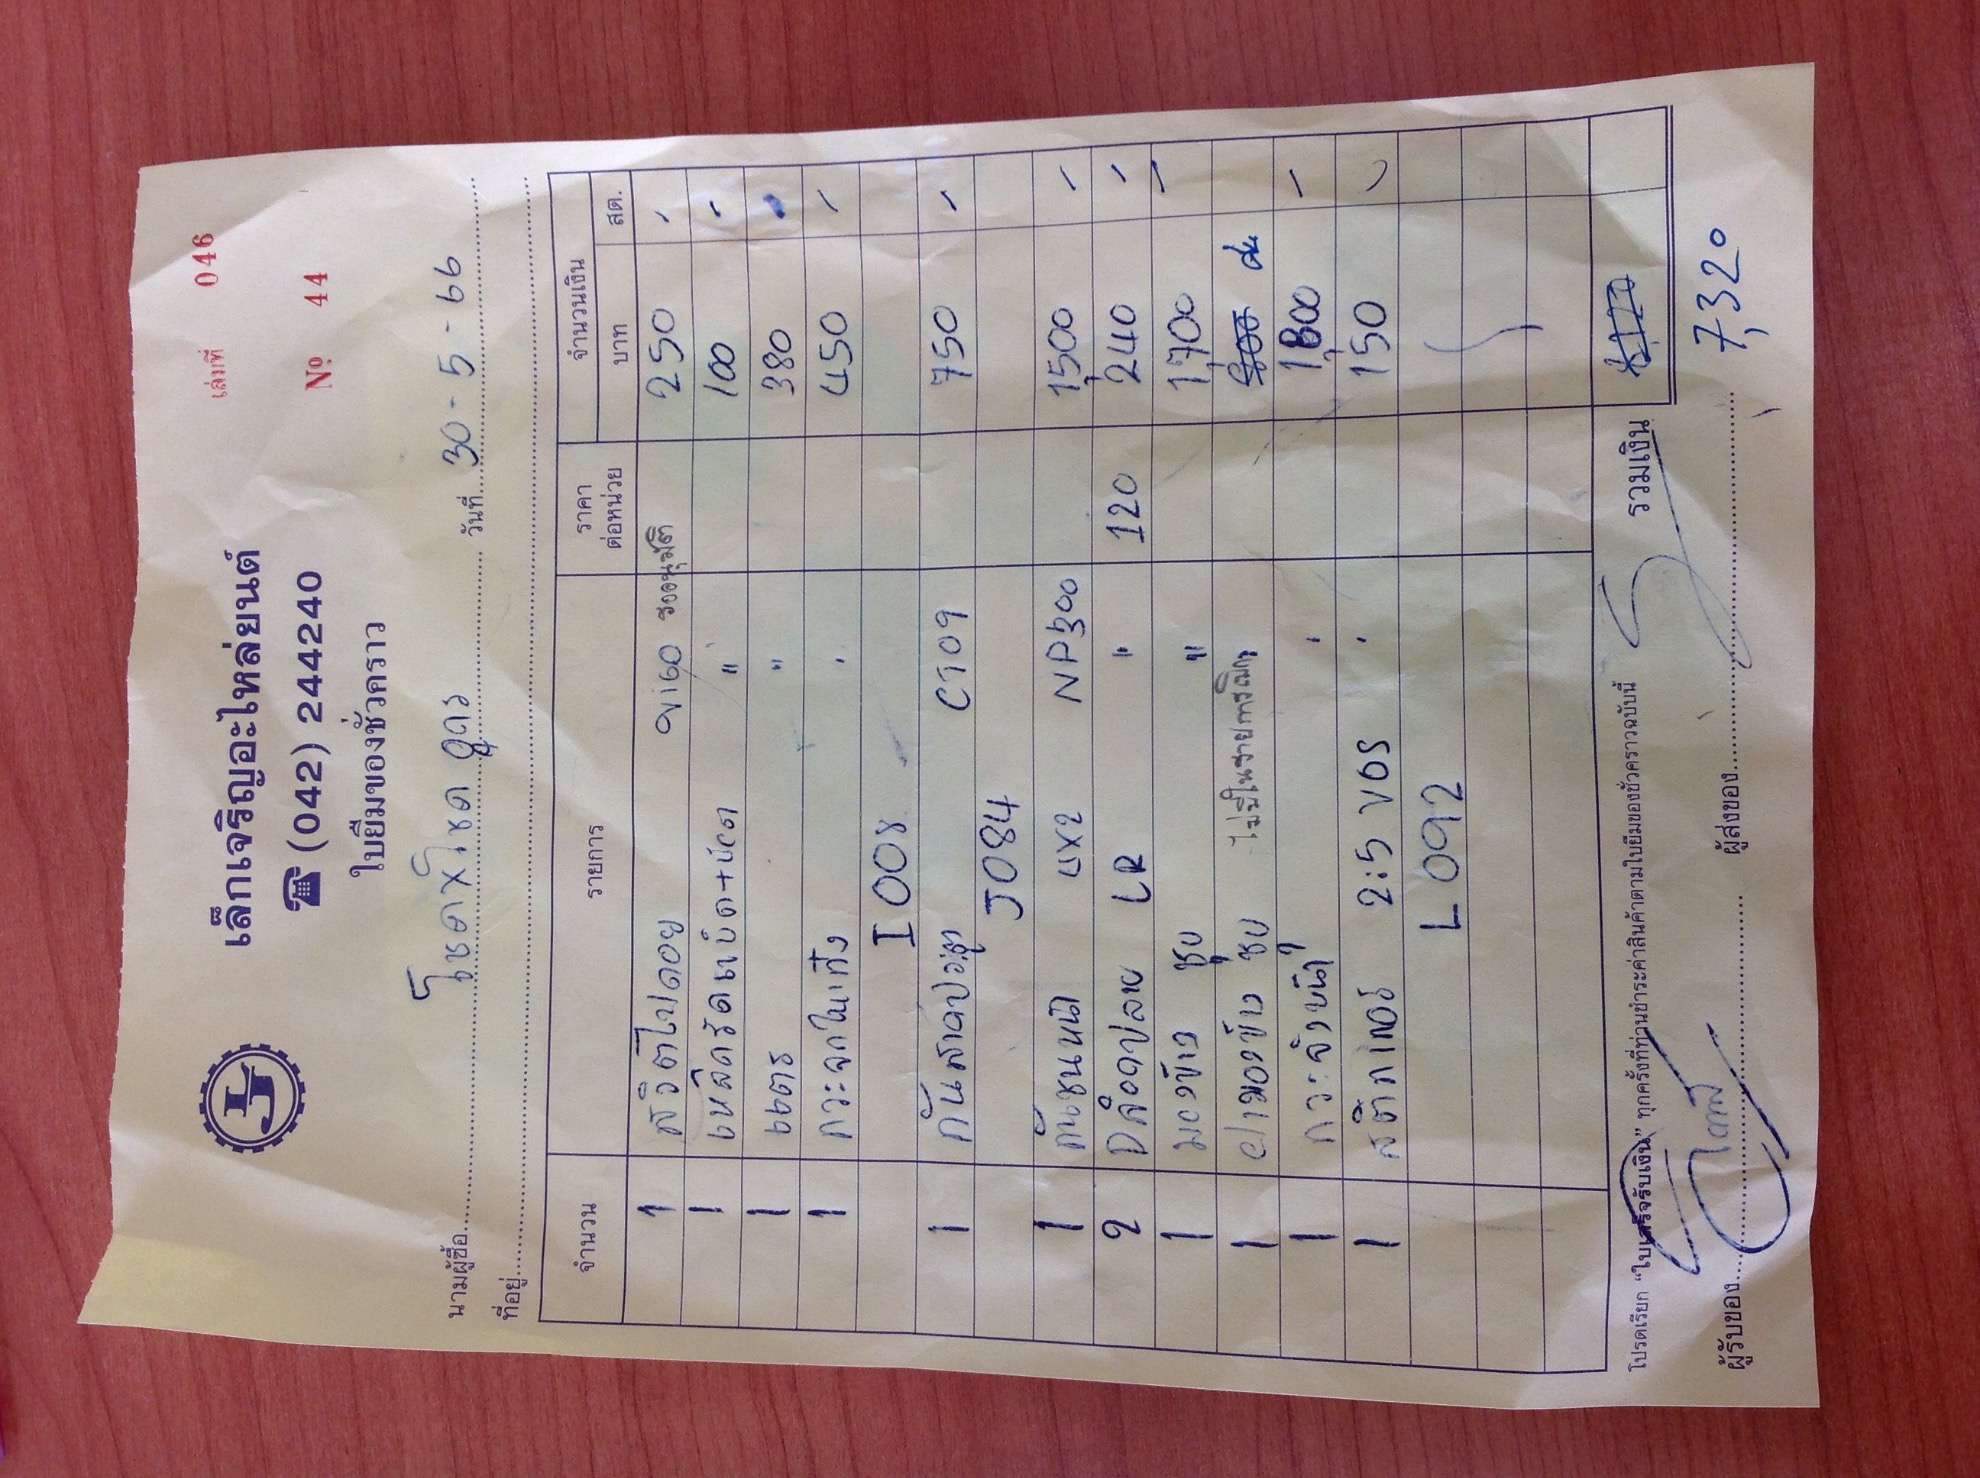 เล่มที่ 046
เล็กเจริญอะไหล่ยนต์
☎ (042) 244240
№ 44
ใบยืมของชั่วคราว
นามผู้ซื้อ โชคX โชค อุดร วันที่ 30-5-66
ที่อยู่
จำนวน รายการ ราคาต่อหน่วย จำนวนเงิน
บาท สต.
1 สวิตไปดอย vigo รออนุมัติ 250 -
1 เหล็กรัดแบ็ต+น๊อต " 100 -
1 แตร " 380 -
1 กระจกในเก๋ง ' 450 -
I 008
1 กันสาดประตู CT09 750 -
J084
1 กันชนหน้า 4x2 NP300 1,500 -
2 ปลอกปลาย LR " 120 240 -
1 มองข้าง ชุบ " 1,700 -
1 ขามองข้าง ชุบ ไม่มีในรายการเบิก
1 กระจังหน้า ' 1,800 -
1 สติกเกอร์ 2:5 VGS ' 150 -
L 092
โปรดเรียก “ใบเสร็จรับเงิน” ทุกครั้งที่ท่านชำระค่าสินค้าตามใบยืมของชั่วคราวฉบับนี้ รวมเงิน
7,320
ผู้รับของ ผู้ส่งของ